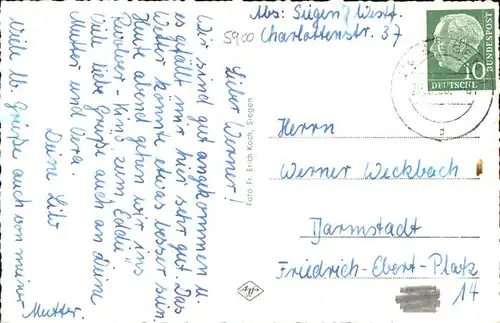 Abs: Siegen/Westf.
5900 Charlottenstr. 37
Lieber Werner!
Wir sind gut angekommen u.
es gefällt mir hier sehr gut. Das
Wetter könnte etwas besser sein
Heute abend gehen wir ins
Revolver-Kino zum „Eddi“
Viele liebe Grüße auch an Deine
Mutter und Vera.
Deine Lilo
Viele lb. Grüße auch von meiner
Mutter.
Foto Fr. Erich Koch, Siegen
10
DEUTSCHE
BUNDESPOST
Herrn
Werner Weckbach
Darmstadt
Friedrich-Ebert-Platz
14